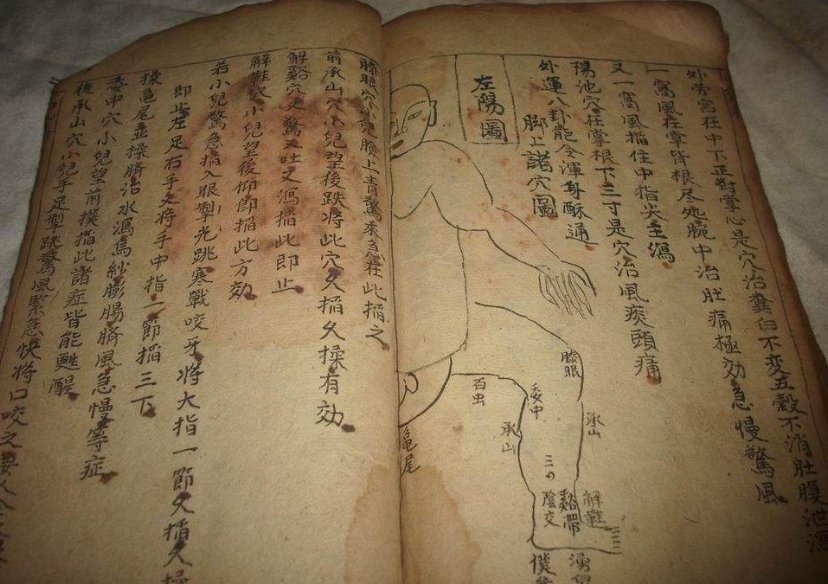 外勞宮在中下正對掌心是穴治糞白不變五穀不消肚腹泄瀉
一窩風在掌背根尽処腕中治肚痛極効急慢驚風
又一窩風掐住中指尖主瀉
陽池穴在掌根下三寸是穴治風痰頭痛
外運八卦能令渾身酥通
脚上諸穴圖
左陽圖
膝眼
百虫
委中
承山
承山
三の陰交
解鞋
龜尾
膝眼穴小兒臉上青驚來急在此掐之
前承山穴小兒望後跌將此穴久掐久揉有効
解谿穴又驚又吐又瀉掐此即止
解鞋穴小兒望後仰節掐此方効
若小兒驚急掐入眼掣光跳寒戰咬牙將大指一節久掐久揉
即止左足右手又將手中指一節掐三下
揉龜尾並揉臍治水瀉烏紗膨腸臍風急慢等症
委中穴小兒望前撲掐此諸症皆能甦醒
後承山穴小兒手足掣跳驚風緊急快將口咬之要久